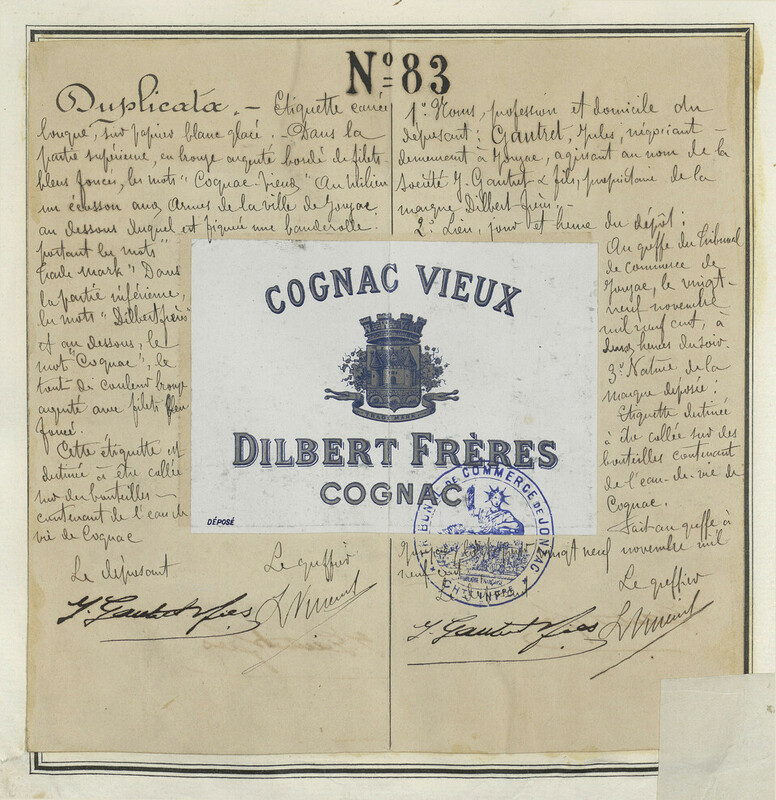 Nº 83
Duplicata. - Etiquette carrée
longue, sur papier blanc glacé. - Dans la
partie supérieure, en bronze argenté bordé de filets
bleus foncés, les mots "Cognac-Vieux" Au milieu
un écusson aux Armes de la ville de Jonzac,
au dessous duquel est figurée une banderolle
portant les mots "
Trade mark" Dans
la partie inférieure,
les mots "Dilbert frères"
et au dessous, le
mot "Cognac", le
tout de couleur bronze
argenté avec filets bleu
foncé.
Cette étiquette est
destinée à être collée
sur des bouteilles
contenant de l'eau de
vie de Cognac
Le déposant
Le greffier
J. Gautret & fils
L Vincent
1º Noms, profession et domicile du
déposant: Gautret, Jules, négociant -
demeurant à Jonzac, agissant au nom de la
Société J. Gautret & fils, propriétaire de la
marque Dilbert-frères. -
2º Lieu, jour et heure du dépôt:
Au greffe du Tribunal
de Commerce de
Jonzac, le vingt-
neuf novembre
mil neuf cent, à
deux heures du soir.
3º Nature de la
marque déposée:
Etiquette destinée
à être collée sur des
bouteilles contenant
de l'eau-de-vie de
Cognac.
Fait au greffe à
vingt neuf novembre mil
Le greffier
J. Gautret & fils
L Vincent
COGNAC VIEUX
TRADE MARK
DILBERT FRÈRES
COGNAC
DÉPOSÉ
TRIBUNAL DE COMMERCE DE JONZAC
CHTE INFRE